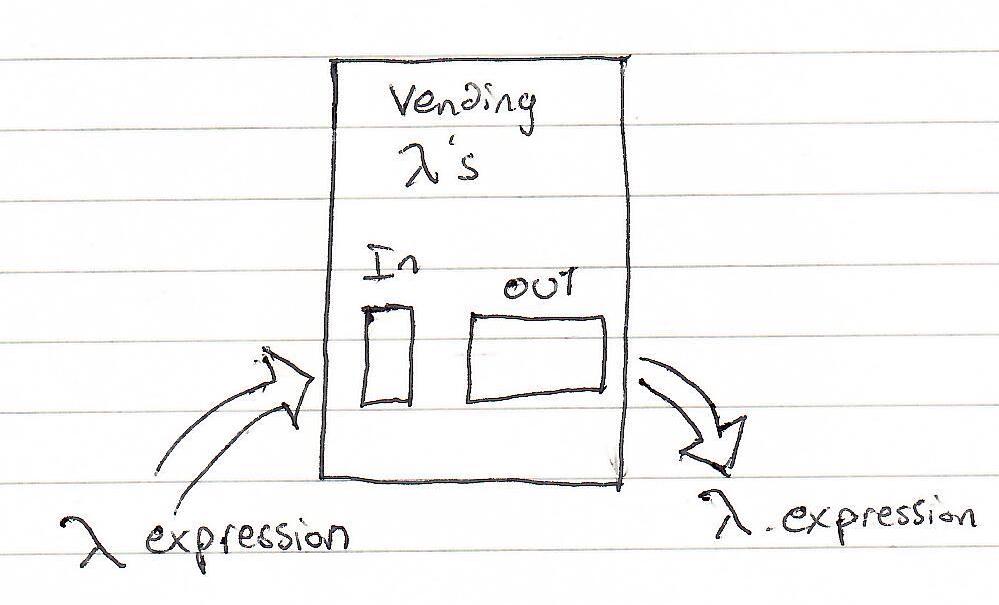 Vending
λ's
In
OUT
λ expression
λ.expression